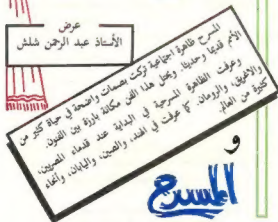 عرض
الأستاذ عبد الرحمن شلش
المسرح ظاهرة اجتماعية تركت بصمات واضحة في حياة كثير من
الأمم قديما وحديثا. ويحتل هذا الفن مكانة بارزة بين الفنون.
وعرفت الظاهرة المسرحية في البداية عند قدماء المصريين،
والأغريق، والرومان. كما عرفت في الهند، والصين، واليابان، وأنحاء
كثيرة من العالم.
و
المسرح